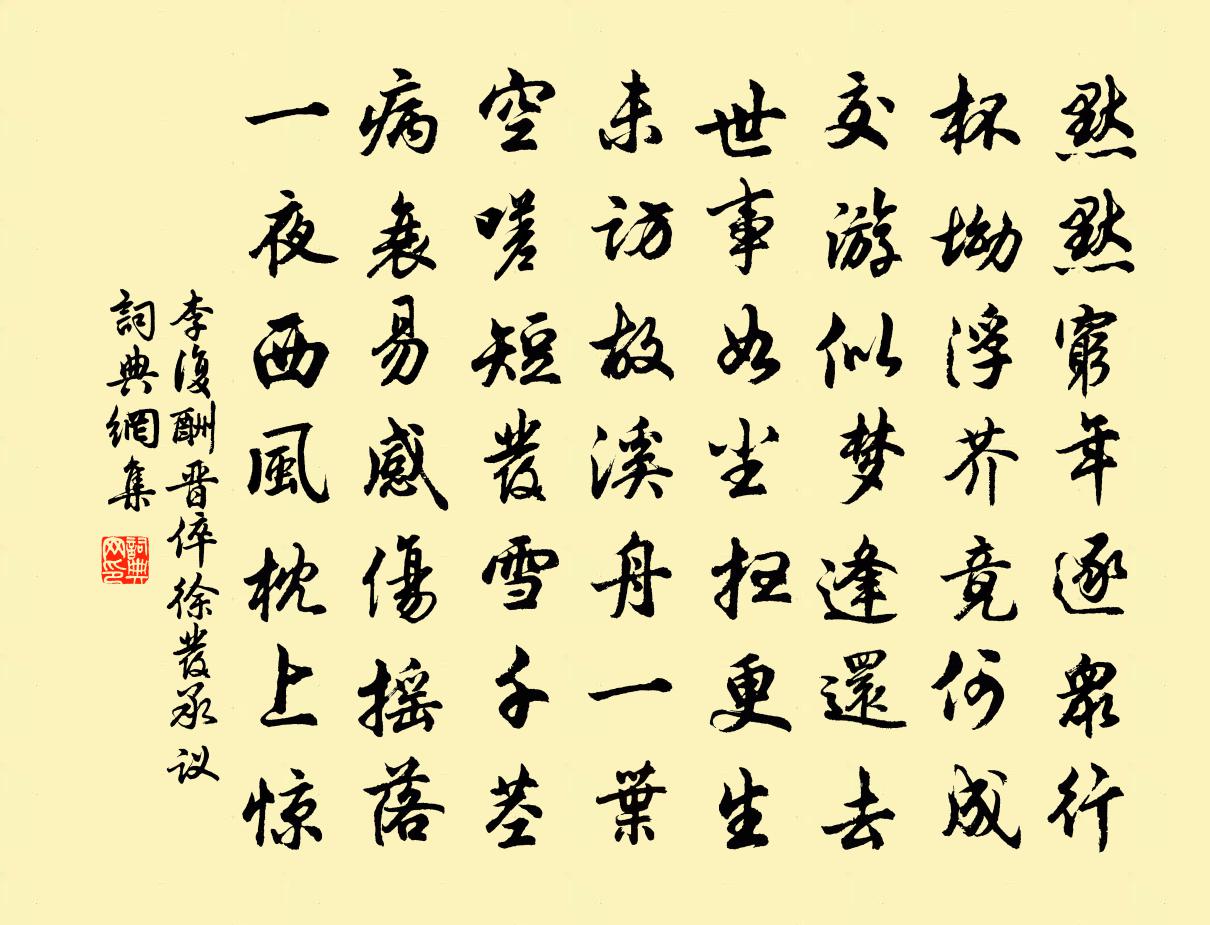 默默窮年逐眾行
杯坳浮芥竟何成
交游似梦逢還去
世事如尘扫更生
未访故溪舟一葉
空嗟短發雪千茎
病衰易感傷摇落
一夜西風枕上惊
李復酬晋倅徐發承议
詞典網集
詞典网印